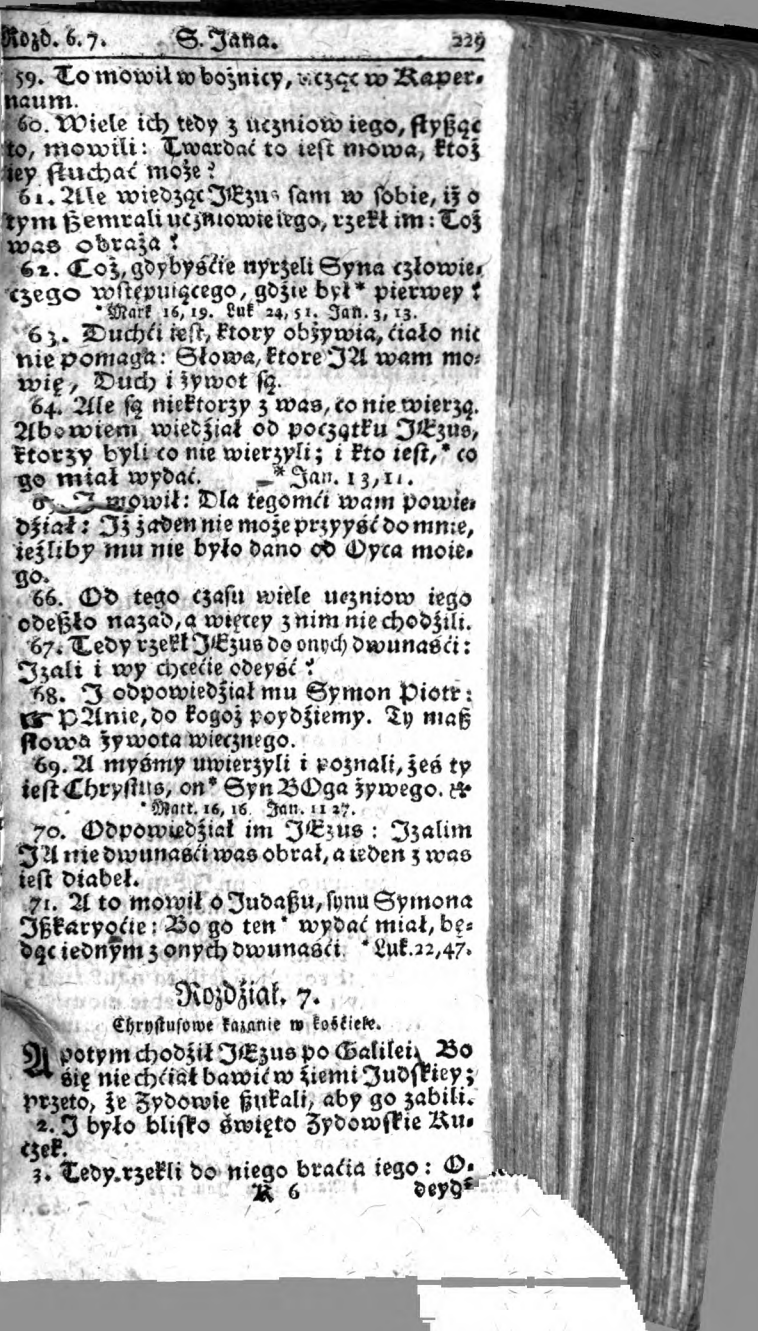 Rozd. 6. 7. S. Jana. 229
59. To mowił w bożnicy, ucząc w Kaper⸗
naum.
60. Wiele ich tedy z uczniow iego, słyßąc
to, mowili: Twardać to iest mowa, ktoż
iey słuchać może?
61. Ale wiedząc JEzus sam w sobie, iż o
tym ßemrali uczniowie iego, rzekł im: Toż
was obraża?
62. Coż, gdybyście uyrzeli Syna człowie⸗
czego wstępuiącego, gdzie był* pierwey?
*Mark 16, 19. Luk 24, 51. Jan. 3, 13.
63. Duchći iest, ktory obżywia, ćiało nic
nie pomaga: Słowa, ktore JA wam mo⸗
wię, Duch i żywot są.
64. Ale są niektorzy z was, co nie wierzą.
Abowiem wiedźiał od początku JEzus,
ktorzy byli co nie wierzyli; i kto iest,* co
go miał wydać. * Jan. 13, 11.
65. J mowił: Dla tegomći wam powie⸗
dźiał: Jż żaden nie może przyyść do mnie,
ieźliby mu nie było dano od Oyca moie⸗
go.
66. Od tego czasu wiele uczniow iego
odeßło nazad, a więcey z nim nie chodźili.
67. Tedy rzekł JEzus do onych dwunaśći:
Jzali i wy chcećie odeyść?
68. J odpowiedźiał mu Symon Piotr:
☞ PAnie, do kogoż poydźiemy. Ty maß
słowa żywota wiecznego.
69. A myśmy uwierzyli i poznali, żeś ty
iest Chrystus, on* Syn BOga żywego.
*Matt. 16, 16. Jan. 11 27.
70. Odpowiedźiał im JEzus: Jzalim
JA nie dwunaśći was obrał, a ieden z was
iest diabeł.
71. A to mowił o Judaßu, synu Symona
Jßkaryoćie: Bo go ten* wydać miał, bę⸗
dąc iednym z onych dwunaśći. *Luk. 22, 47.
Rozdźiał. 7.
Chrystusowe kazanie w kośćiele.
A potym chodźił JEzus po Galilei, Bo
się nie chćiał bawić w źiemi Judskiey;
przeto, że Zydowie ßukali, aby go zabili.
2. J było blisko święto Zydowskie Ku⸗
czek.
3. Tedy rzekli do niego braćia iego: O⸗
K 6 deydź